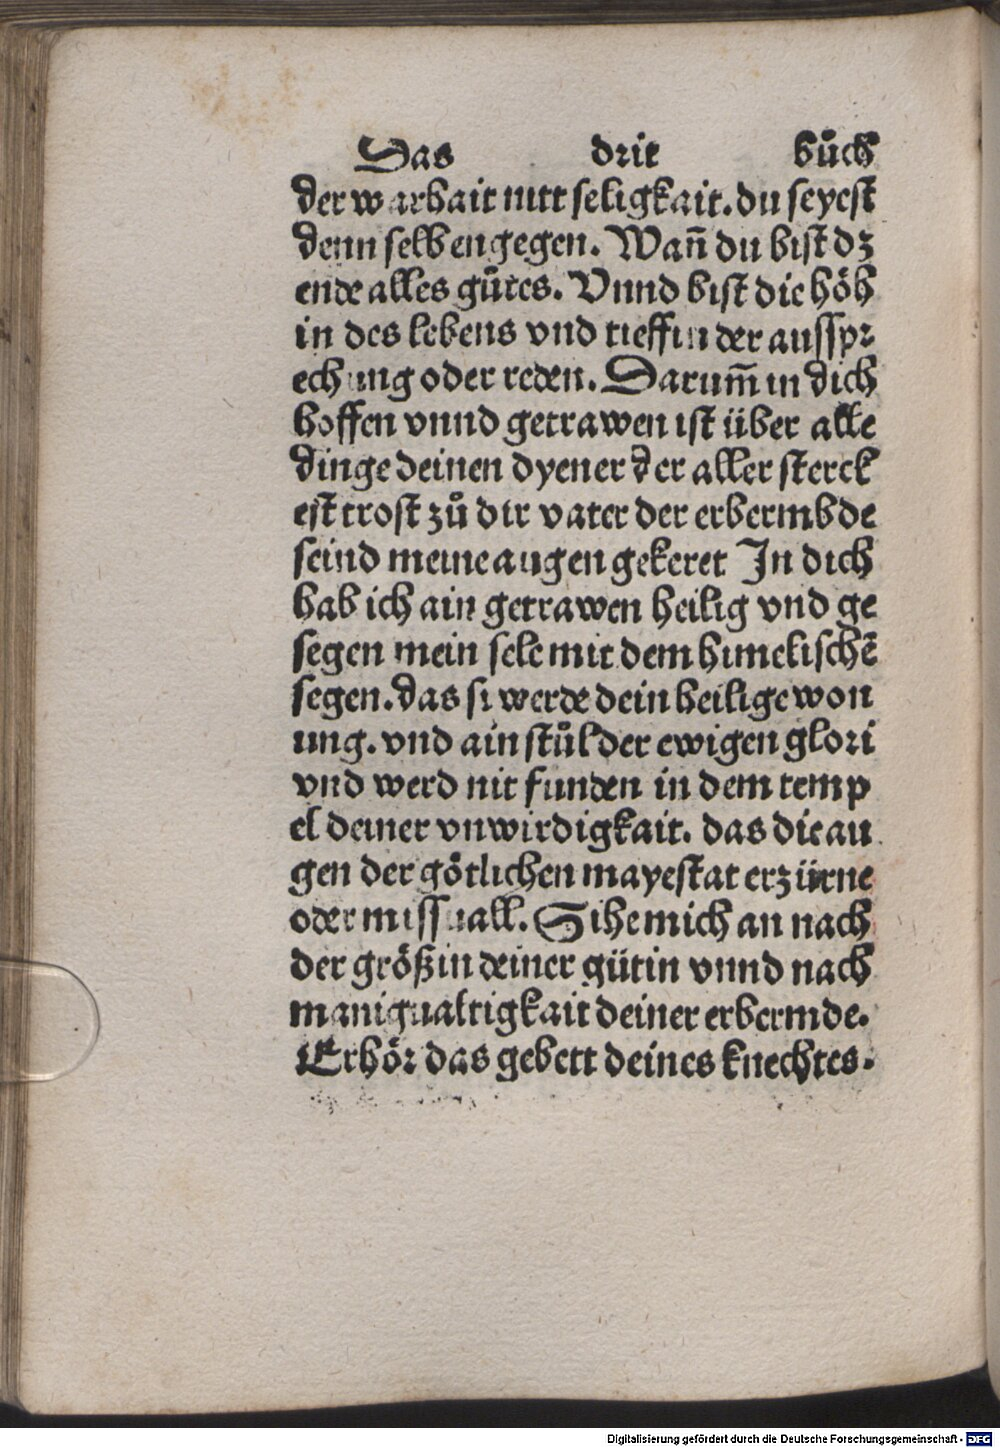 Das drit bůch
der warhait mit seligkait. du seyest
denn selb engegen. Wañ du bist dz
ende alles gůtes. Vnnd bist die höh
in des lebens vnd tieffin der ausspr
echung oder reden. Darum̃ in dich
hoffen vnnd getrawen ist über alle
dinge deinen dyener der aller sterck
est trost zů dir vater der erbermbde
seind meine augen gekeret In dich
hab ich ain getrawen heilig vnd ge
segen mein sele mit dem himelischẽ
segen. das si werde dein heilige won
ung. vnd ain stůl der ewigen glori
vnd werd nit funden in dem temp
el deiner vnwirdigkait. das die au
gen der götlichen mayestat erzürne
oder missuall. Sihe mich an nach
der größin deiner gütin vnnd nach
manigualtigkait deiner erbermde.
Erhör das gebett deines knechtes.
Digitalisierung gefördert durch die Deutsche Forschungsgemeinschaft - DFG